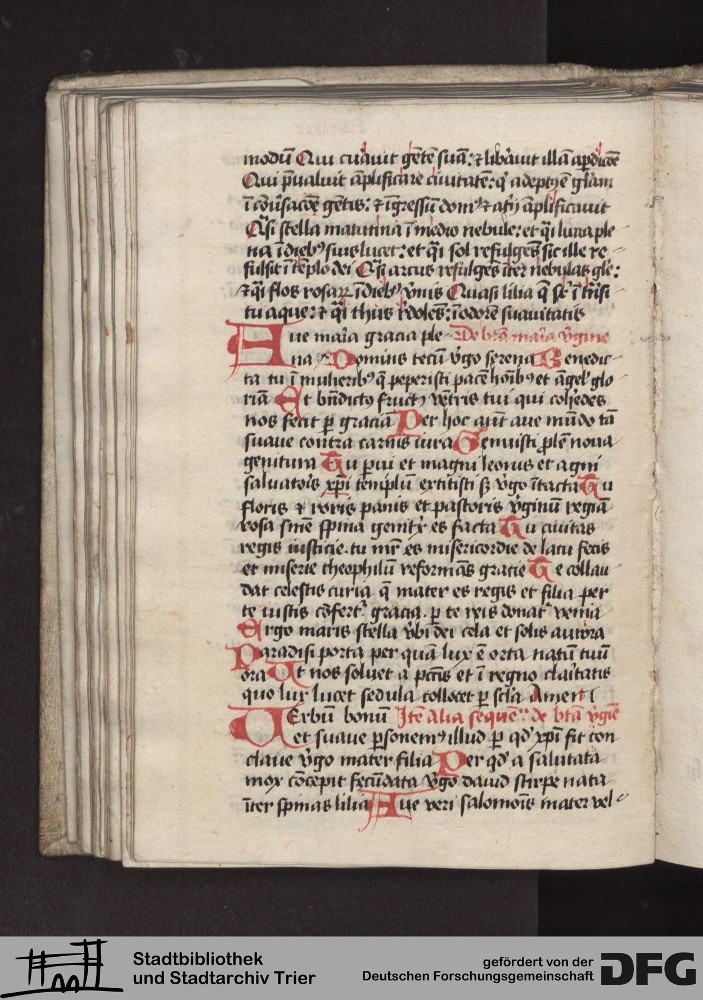 modū Qui curauit gētē suā: ⁊ libauit illā a pdicōe
Qui p̄ualuit āplificare ciuitatē: q̄ adeptꝰ ē glām
ī cōuersacōe gētis: ⁊ īgressū domꝰ ⁊ atrij āplificauit
Q̄si stella matutina ī medio nebule: et q̄si luna ple
na ī diebꝰ suis lucet: et q̄si sol refulgēs sic ille re
fulsit ī tēplo dei Q̄si arcus refulgēs īter nebulas gl̄e:
⁊ q̄si flos rosaꝝ ī diebꝰ v̄nis Quasi lilia q̄ st̄ ī trāsi
tu aque: ⁊ q̄si thus r̄dolēs ī odore suauitatis
Aue maria gracia ple De btā maria v̄gine
na Dominus tecū v̄go serena Benedic
ta tu ī mulieribꝰ q̄ peperisti pacē hoībꝰ et āgel' glo
riā Et bn̄dictꝰ fructꝰ vētris tui qui cohedes
nos fecit ꝑ graciā Per hoc aūt aue mūdo tā
suaue contra carnis iura Genuisti ꝓlē noua
genitura Tu parui et magni leonis et agni
saluatoīs xp̄i templū extitisti sꝫ v̄go ītacta Tu
floris ⁊ roris panis et pastoris v̄ginū regīa
rosa sine spina genitrix es facta Tu ciuitas
regis iusticie tu mr̄ es misericordie de lacu fecis
et miserie theophilū reformās gracie Te collau
dat celestis curia q̄ mater es regis et filia per
te iustis cōfertᵘ gracia ꝑ te reis donatᵘ venia
Ergo maris stella v̄bi dei cela et solis aurora
Paradisi porta per quā lux ē orta natum tuū
ora Ut nos soluet a pctīs et ī regno claritatis
quo lux lucet sedula collocet ꝑ scl̄a Amen
UErbum bonum Itē Alia sequē de btā v̄gīe
et suaue ꝑsonemꝰ illud ꝑ qd' xp̄i fit con
claue v̄go mater filia Per qd' a salutata
mox cōcepit fecūdata v̄go dauid stirpe nata
īter spinas lilia Aue veri salomoīs mater vel
Stadtbibliothek
und Stadtarchiv Trier
gefördert von der
Deutschen Forschungsgemeinschaft
DFG